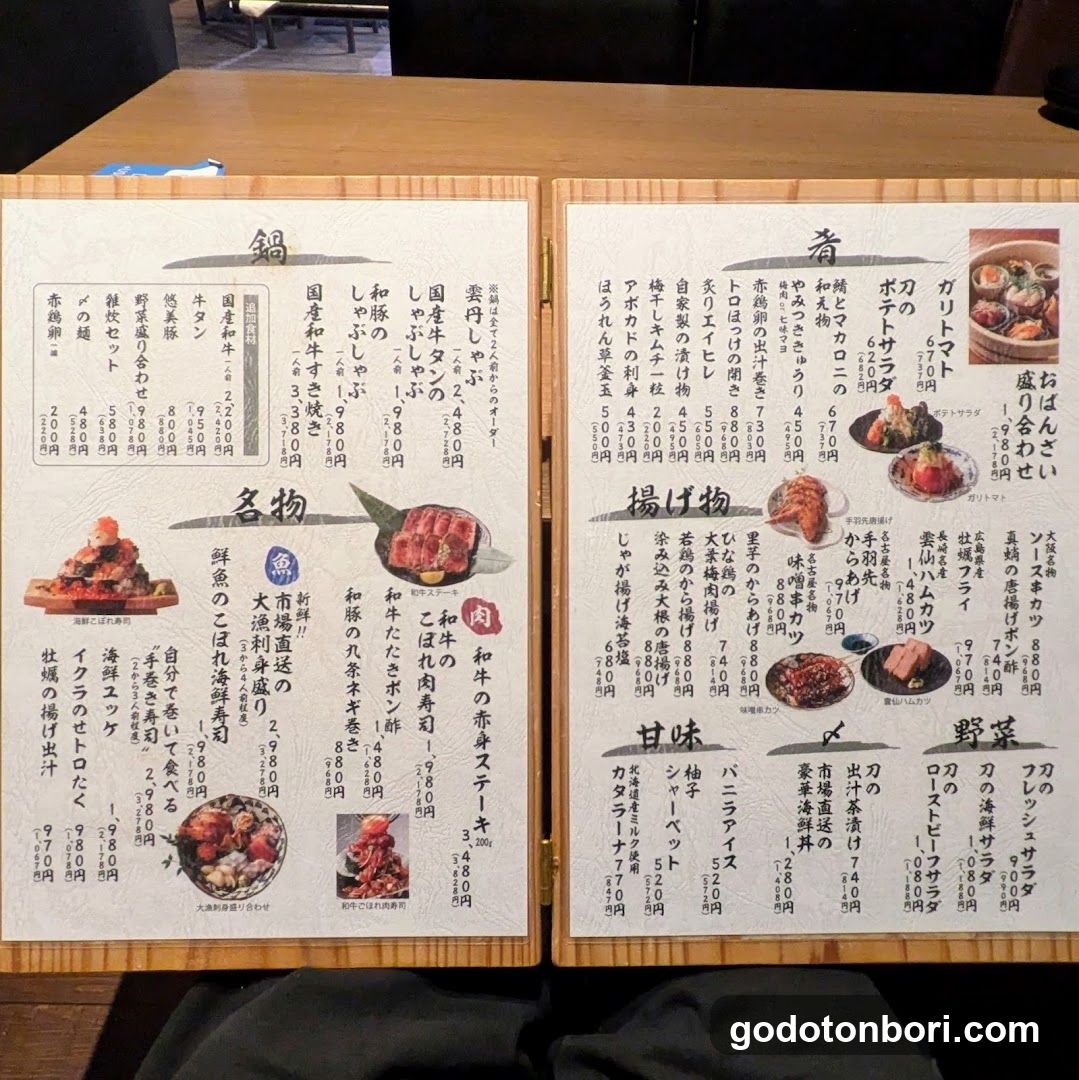 鍋
※鍋は全て2人前からのオーダー
雲丹しゃぶ
一人前 2,480円
(2,728円)
国産牛タンの
しゃぶしゃぶ
一人前 1,980円
(2,178円)
和豚の
しゃぶしゃぶ
一人前 1,980円
(2,178円)
国産和牛すき焼き
一人前 3,380円
(3,718円)
追加食材
国産和牛 一人前 2,200円
(2,420円)
牛タン 950円
(1,045円)
悠美豚 800円
(880円)
野菜盛り合わせ 980円
(1,078円)
雑炊セット 580円
(638円)
〆の麺 480円
(528円)
赤鶏卵 一個 200円
(220円)
名物
和牛ステーキ
肉
和牛の赤身ステーキ 200g
3,480円
(3,828円)
和牛の
こぼれ肉寿司 1,980円
(2,178円)
和牛たたきポン酢
1,480円
(1,628円)
和豚の九条ネギ巻き
880円
(968円)
和牛こぼれ肉寿司
魚
新鮮!!
市場直送の
大漁刺身盛り
(3から4人前程度)
2,980円
(3,278円)
鮮魚のこぼれ海鮮寿司
1,980円
(2,178円)
自分で巻いて食べる
"手巻き寿司"
(2から3人前程度)
2,980円
(3,278円)
海鮮ユッケ 1,980円
(2,178円)
イクラのせトロたく
980円
(1,078円)
牡蠣の揚げ出汁
970円
(1,067円)
海鮮こぼれ寿司
大漁刺身盛り合わせ
肴
おばんざい
盛り合わせ
1,980円
(2,178円)
ガリトマト
670円
(737円)
刀の
ポテトサラダ
620円
(682円)
鯖とマカロニの
和え物
670円
(737円)
やみつききゅうり
梅肉 or 七味マヨ
450円
(495円)
赤鶏卵の出汁巻き
730円
(803円)
トロほっけの開き
880円
(968円)
炙りエイヒレ
550円
(605円)
自家製の漬け物
450円
(495円)
梅干しキムチ一粒
200円
(220円)
アボカドの刺身
430円
(473円)
ほうれん草釜玉
505円
(550円)
ポテトサラダ
ガリトマト
揚げ物
手羽先唐揚げ
大阪名物
ソース串カツ
880円
(968円)
真蛸の唐揚げポン酢
740円
(814円)
広島県産
牡蠣フライ
970円
(1,067円)
長崎名産
雲仙ハムカツ
1,480円
(1,628円)
名古屋名物
手羽先
からあげ
970円
(1,067円)
名古屋名物
味噌串カツ
880円
(968円)
里芋のからあげ
880円
(968円)
ひなの鶏の
大葉梅肉揚げ
740円
(814円)
若鶏のから揚げ
880円
(968円)
染み込み大根の唐揚げ
じゃが揚げ海苔塩
680円
(748円)
味噌串カツ
雲仙ハムカツ
野菜
刀の
フレッシュサラダ
900円
(990円)
刀の海鮮サラダ
1,080円
(1,188円)
刀の
ローストビーフサラダ
1,080円
(1,188円)
〆
刀の
出汁茶漬け
740円
(814円)
市場直送の
豪華海鮮丼
1,280円
(1,408円)
甘味
バニラアイス
520円
(572円)
柚子
シャーベット
520円
(572円)
北海道産ミルク使用
カタラーナ 770円
(847円)
godotonbori.com